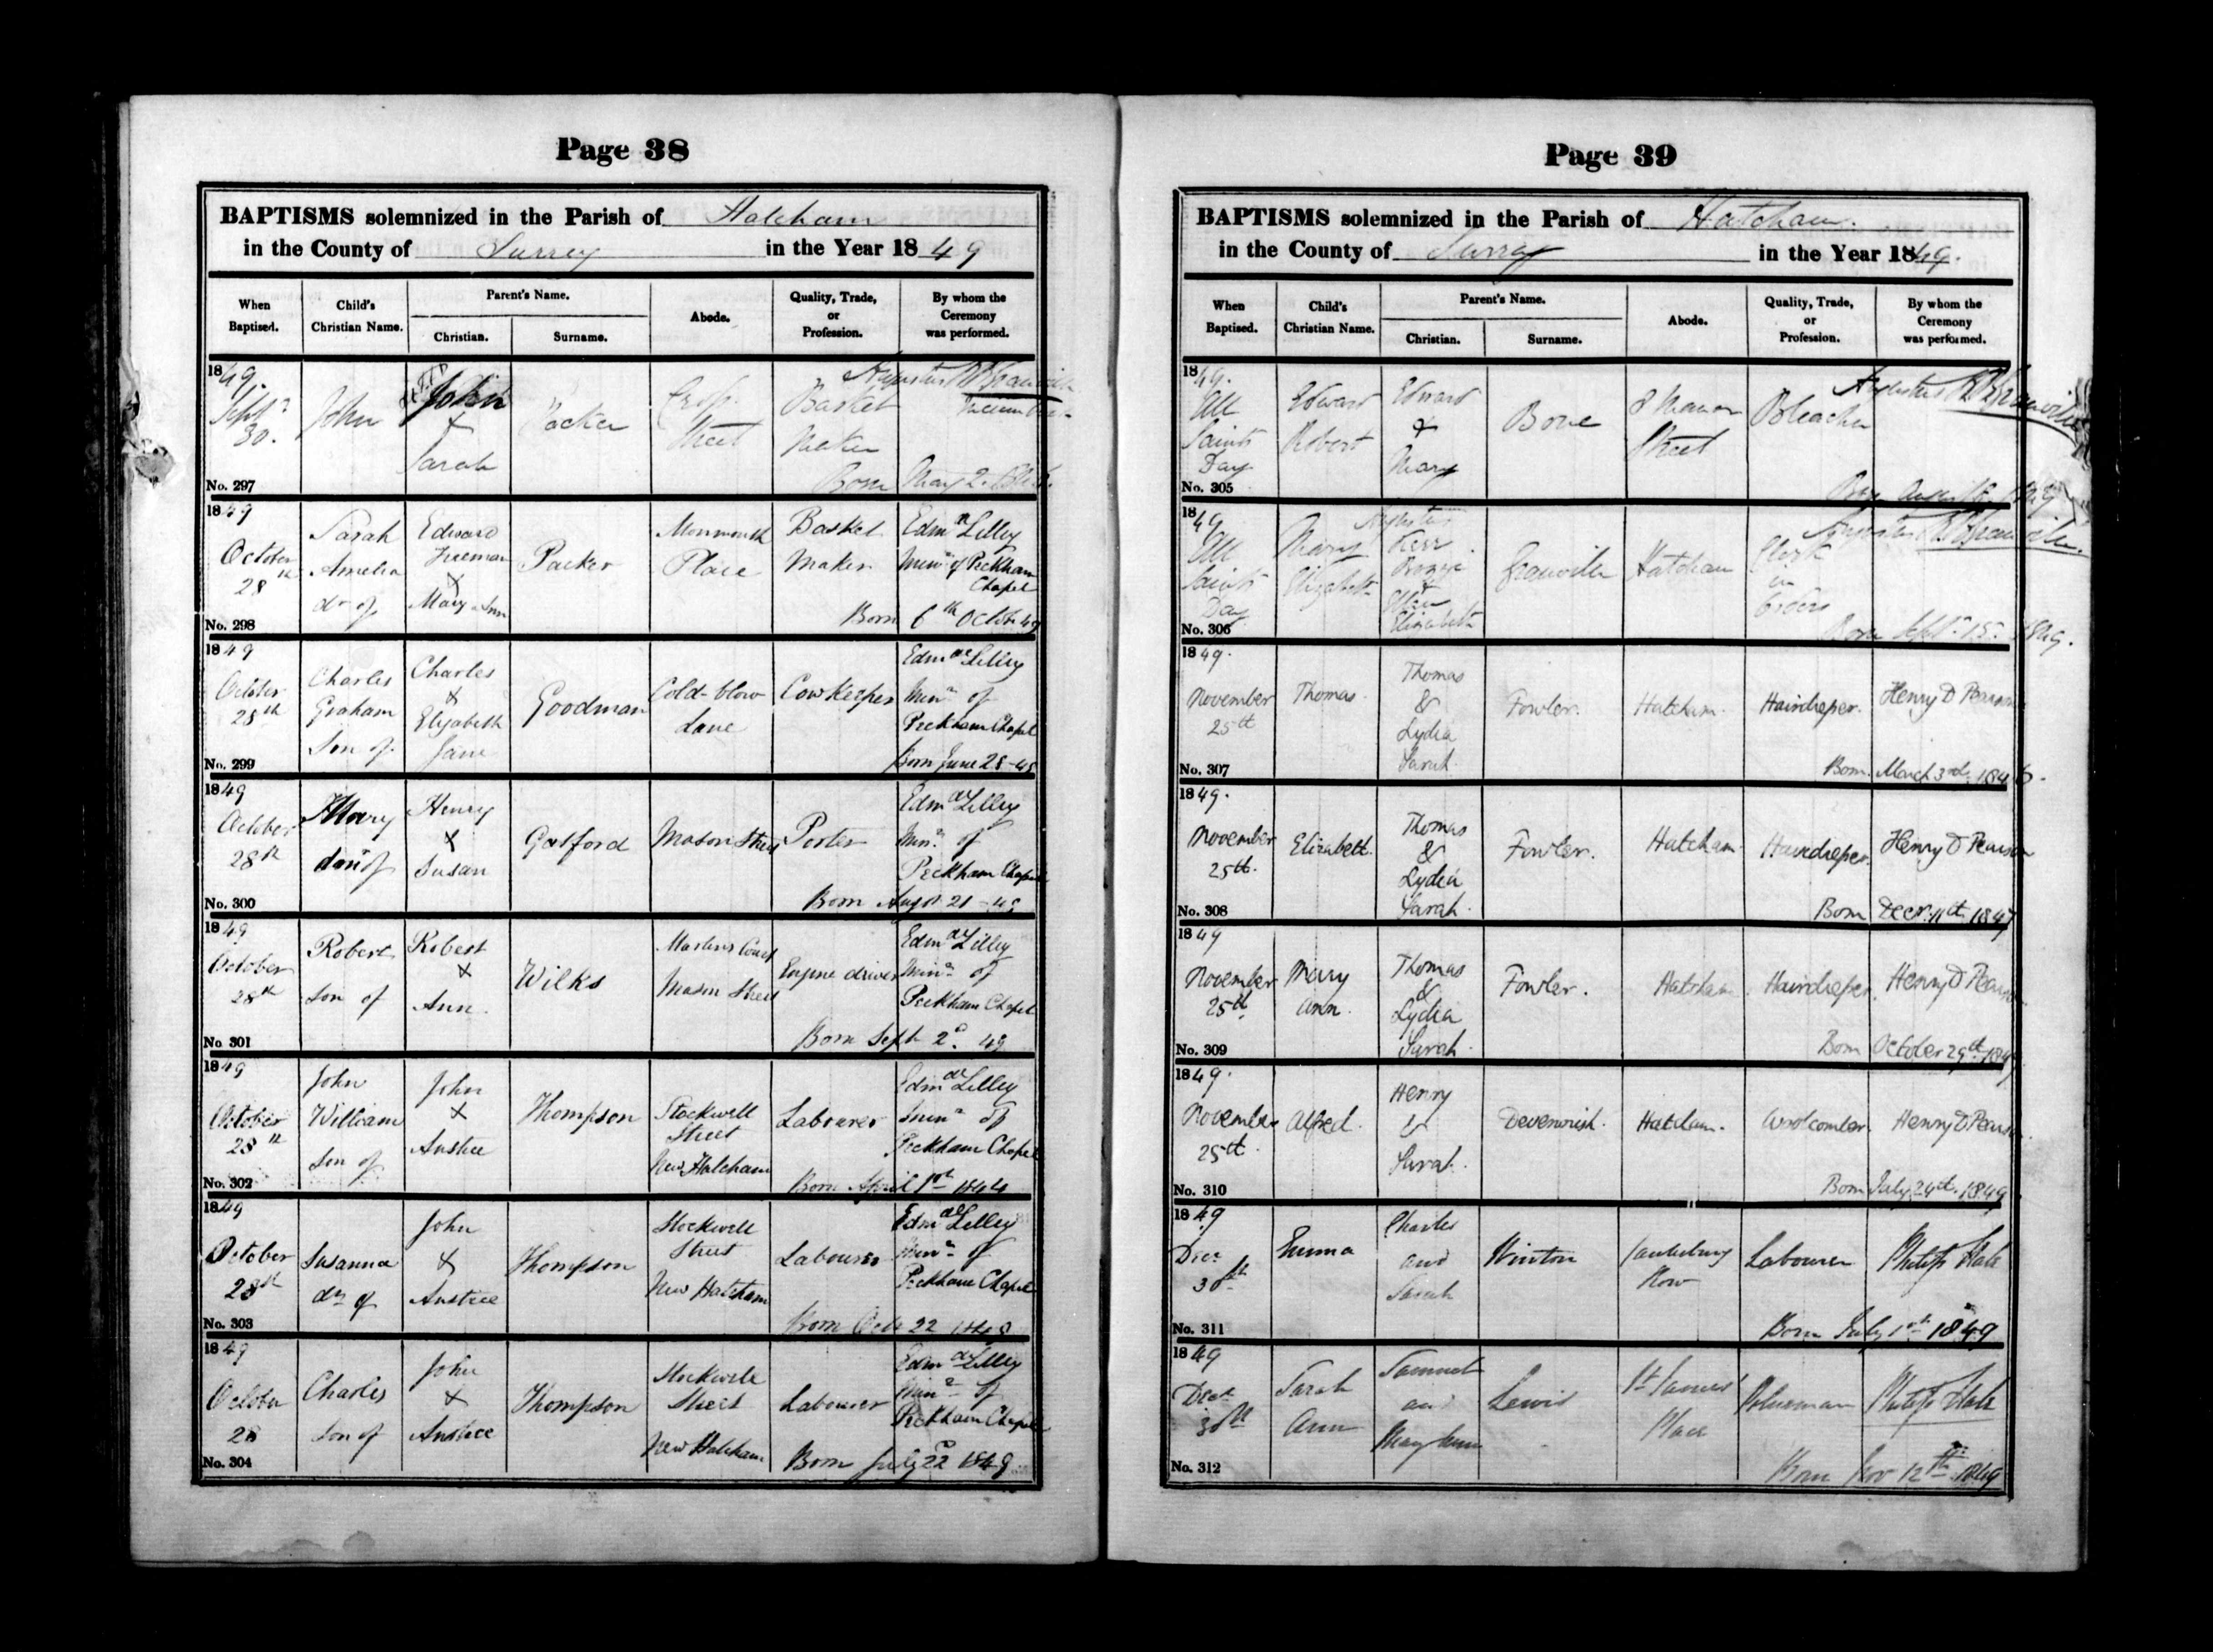 Page 38
BAPTISMS solemnized in the Parish of Hatcham
in the County of Surrey in the Year 1849
When Baptised.
Child's Christian Name.
Parent's Name.
Christian.
Surname.
Abode.
Quality, Trade, or Profession.
By whom the Ceremony was performed.
1849.
Septr
30.
John
John
+
Sarah
Packer
Cross
Street
Basket
Maker
Augustus B Granville
Born May 2.
No. 297
1849
October
28th
Sarah
Amelia
dr of
Edward
Freeman
+
Mary Ann
Packer
Monmouth
Place
Basket
Maker
Edmd Lilley
Minr of Peckham
Chapel
Born 6th Octbr 49
No. 298
1849
October
28th
Charles
Graham
Son of
Charles
+
Elizabeth
Jane
Goodman
Cold-blow
Lane
Cow Keeper
Edmd Lilley
Minr of
Peckham Chapel
Born June 28-48
No. 299
1849
October
28th
Mary
daur of
Henry
+
Susan
Gatford
Mason Street
Porter
Edmd Lilley
Minr of
Peckham Chapel
Born Augst 21-49
No. 300
1849
October
28th
Robert
Son of
Robert
+
Ann
Wilks
Martins Court
Mason Street
Engine driver
Edmd Lilley
Minr of
Peckham Chapel
Born Septr 2d 49
No 301
1849
October
28th
John
William
Son of
John
+
Anstice
Thompson
Stockwell
Street
New Hatcham
Labourer
Edmd Lilley
Minr of
Peckham Chapel
Born April 1st 1844
No. 302
1849
October
28th
Susanna
dr of
John
+
Anstice
Thompson
Stockwell
Street
New Hatcham
Labourer
Edmd Lilley
Minr of
Peckham Chapel
Born Octr 22
No. 303
1849
October
28
Charles
Son of
John
+
Anstice
Thompson
Stockwell
Street
New Hatcham
Labourer
Edmd Lilley
Minr of
Peckham Chapel
Born July 22d 1849
No. 304
Page 39
BAPTISMS solemnized in the Parish of Hatcham.
in the County of Surrey in the Year 1849.
When Baptised.
Child's Christian Name.
Parent's Name.
Christian.
Surname.
Abode.
Quality, Trade, or Profession.
By whom the Ceremony was performed.
1849.
All
Saints
Day
Edward
Robert
Edward
+
Mary
Bone
8 Manor
Street
Bleacher
Augustus B Granville
No. 305
1849
All
Saints
Day
Mary
Elizabeth
Augustus
Kerr
Bozzi
+
Ellen
Elizabeth
Granville
Hatcham
Clerk
in
Orders
Augustus B Granville.
Born Septr 15. 1849.
No. 306
1849.
November
25th
Thomas.
Thomas
&
Lydia
Sarah.
Fowler.
Hatcham.
Hairdreper.
Henry D Pearson
Born. March 3rd. 1846.
No. 307
1849.
November
25th.
Elizabeth.
Thomas
&
Lydia
Sarah.
Fowler.
Hatcham.
Hairdreper.
Henry D Pearson
Born Decr. 11th. 1847
No. 308
1849
November
25th.
Mary
Ann.
Thomas
&
Lydia
Sarah.
Fowler.
Hatcham.
Hairdreper.
Henry D Pearson
Born October 29th 1849
No. 309
1849.
November
25th.
Alfred.
Henry
&
Sarah.
Devenish.
Hatcham.
Woolcomber.
Henry D Pearson.
Born July 24th. 1849
No. 310
1849
Decr
30th
Emma
Charles
and
Sarah
Winton
Canterbury
Row
Labourer
Philip Hale
Born July 1st 1849
No. 311
1849
Decr
30th
Sarah
Ann
Samuel
and
Mary Ann
Lewis
St James'
Place
Policeman
Philip Hale
Born Nov 12th 1849
No. 312